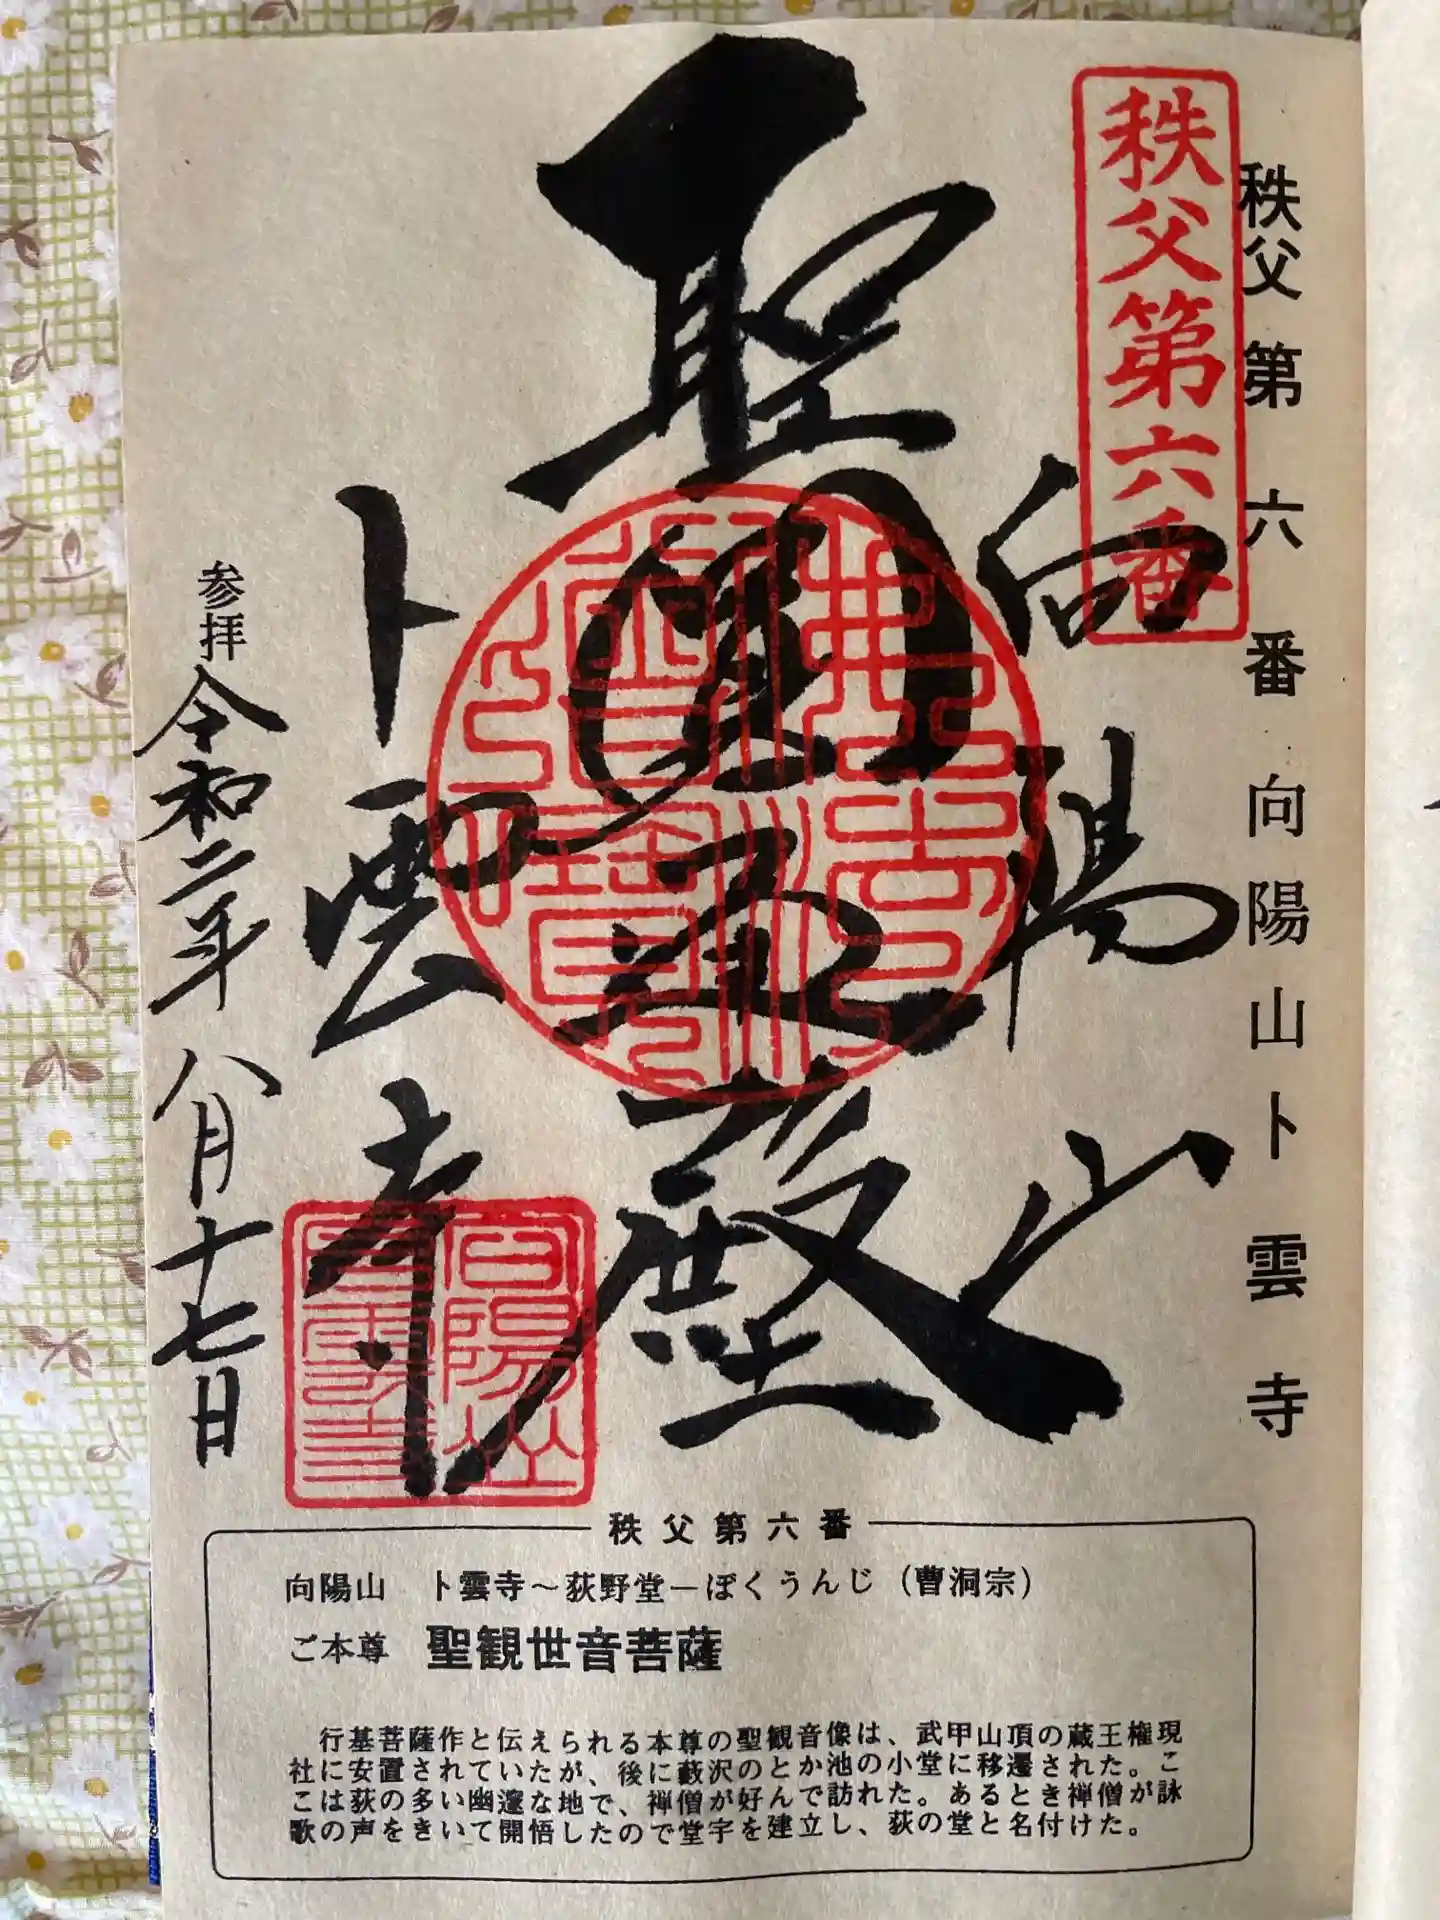 秩父第六番 向陽山卜雲寺
秩父第六番
向陽山
聖
殿
卜雲寺
参拝 令和二年 八月十七日
秩父第六番
向陽山 卜雲寺〜荻野堂ーぼくうんじ（曹洞宗）
ご本尊 聖観世音菩薩
行基菩薩作と伝えられる本尊の聖観音像は、武甲山頂の蔵王権現
社に安置されていたが、後に藪沢のとか池の小堂に移遷された。こ
こは荻の多い幽邃な地で、禅僧が好んで訪れた。あるとき禅僧が詠
歌の声をきいて開悟したので堂宇を建立し、荻の堂と名付けた。